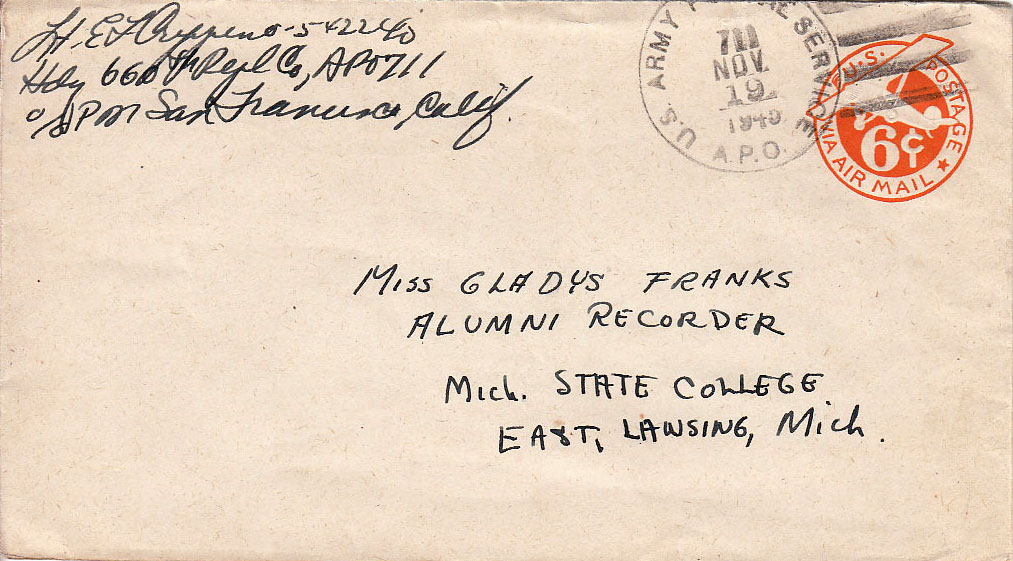 Lt. E. L. Crippino - 542240
Hdq 660th Repl Co, APO 711
c/o PM San Francisco, Calif.
U.S. ARMY POSTAL SERVICE
711
NOV
19
1945
A.P.O.
U.S. POSTAGE
6¢
VIA AIR MAIL
Miss GLADYS FRANKS
ALUMNI RECORDER
Mich. STATE COLLEGE
EAST, LAWSING, Mich.